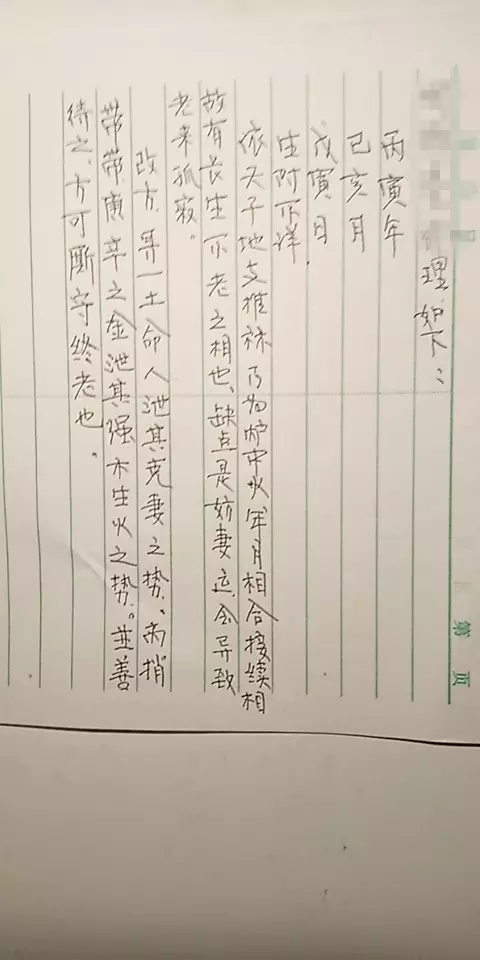 第 页
理如下：
丙寅年
己亥月
戊寅日
生时不详.
依天干地支推乃为炉中火年月相合接续相
故有长生不老之相也、缺点是妨妻运会导致
老来孤寂。
改方.寻一土命人泄其克妻之势、而捎
带带庚辛之金泄其强木生火之势。並善
待之、方可断守终老也。